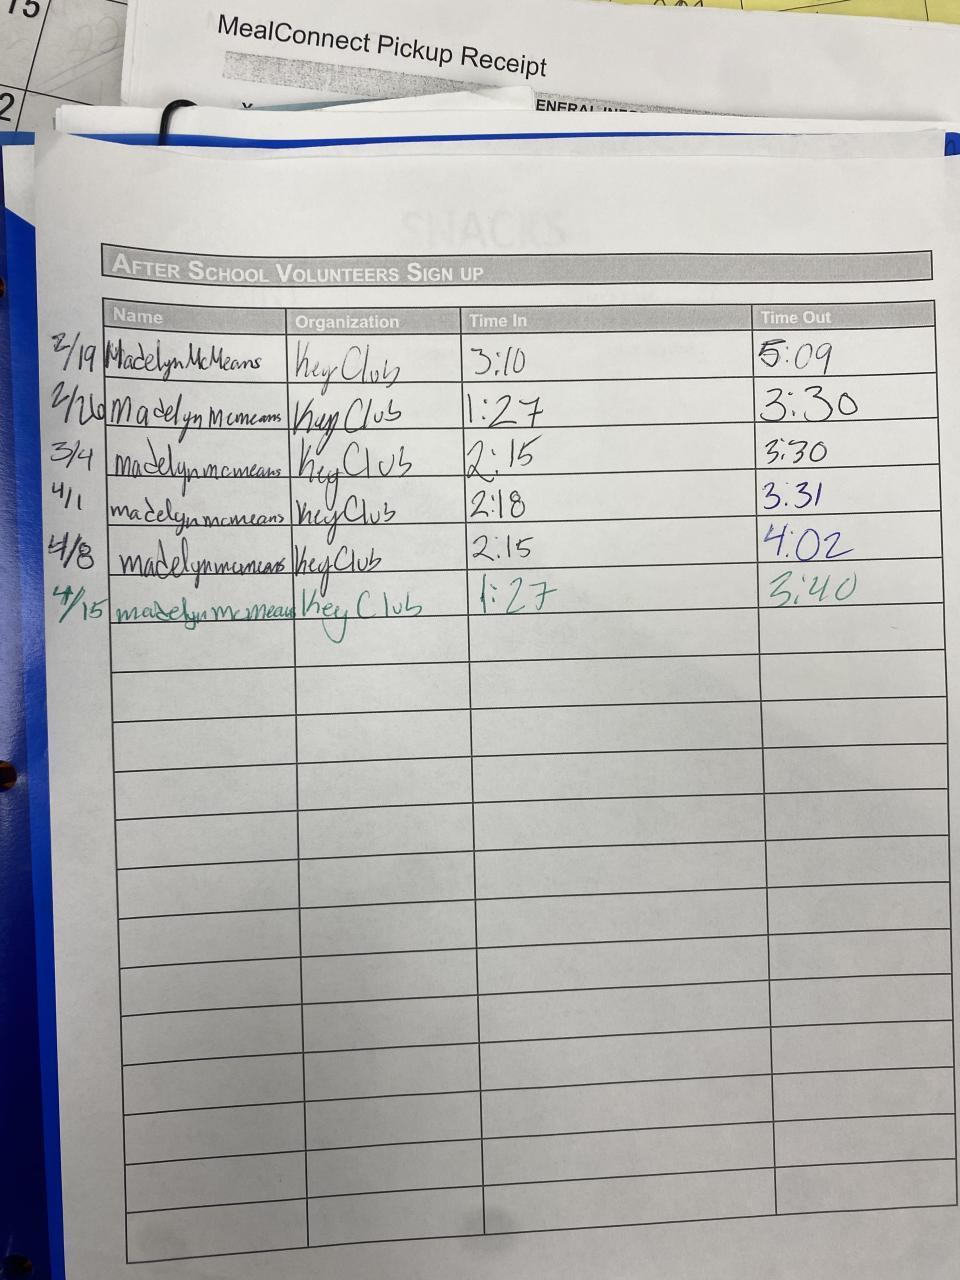 15
2
MealConnect Pickup Receipt
SNACKS
AFTER SCHOOL VOLUNTEERS SIGN UP
Name Organization Time In Time Out
2/19 Madelyn McMeans Key Club 3:10 5:09
2/26 madelyn mcmeans Key Club 1:27 3:30
3/4 madelyn mcmeans Key Club 2:15 3:30
4/1 madelyn mcmeans Key Club 2:18 3:31
4/8 madelyn mcmeans Key Club 2:15 4:02
4/15 madelyn mcmeans Key Club 1:27 3:40